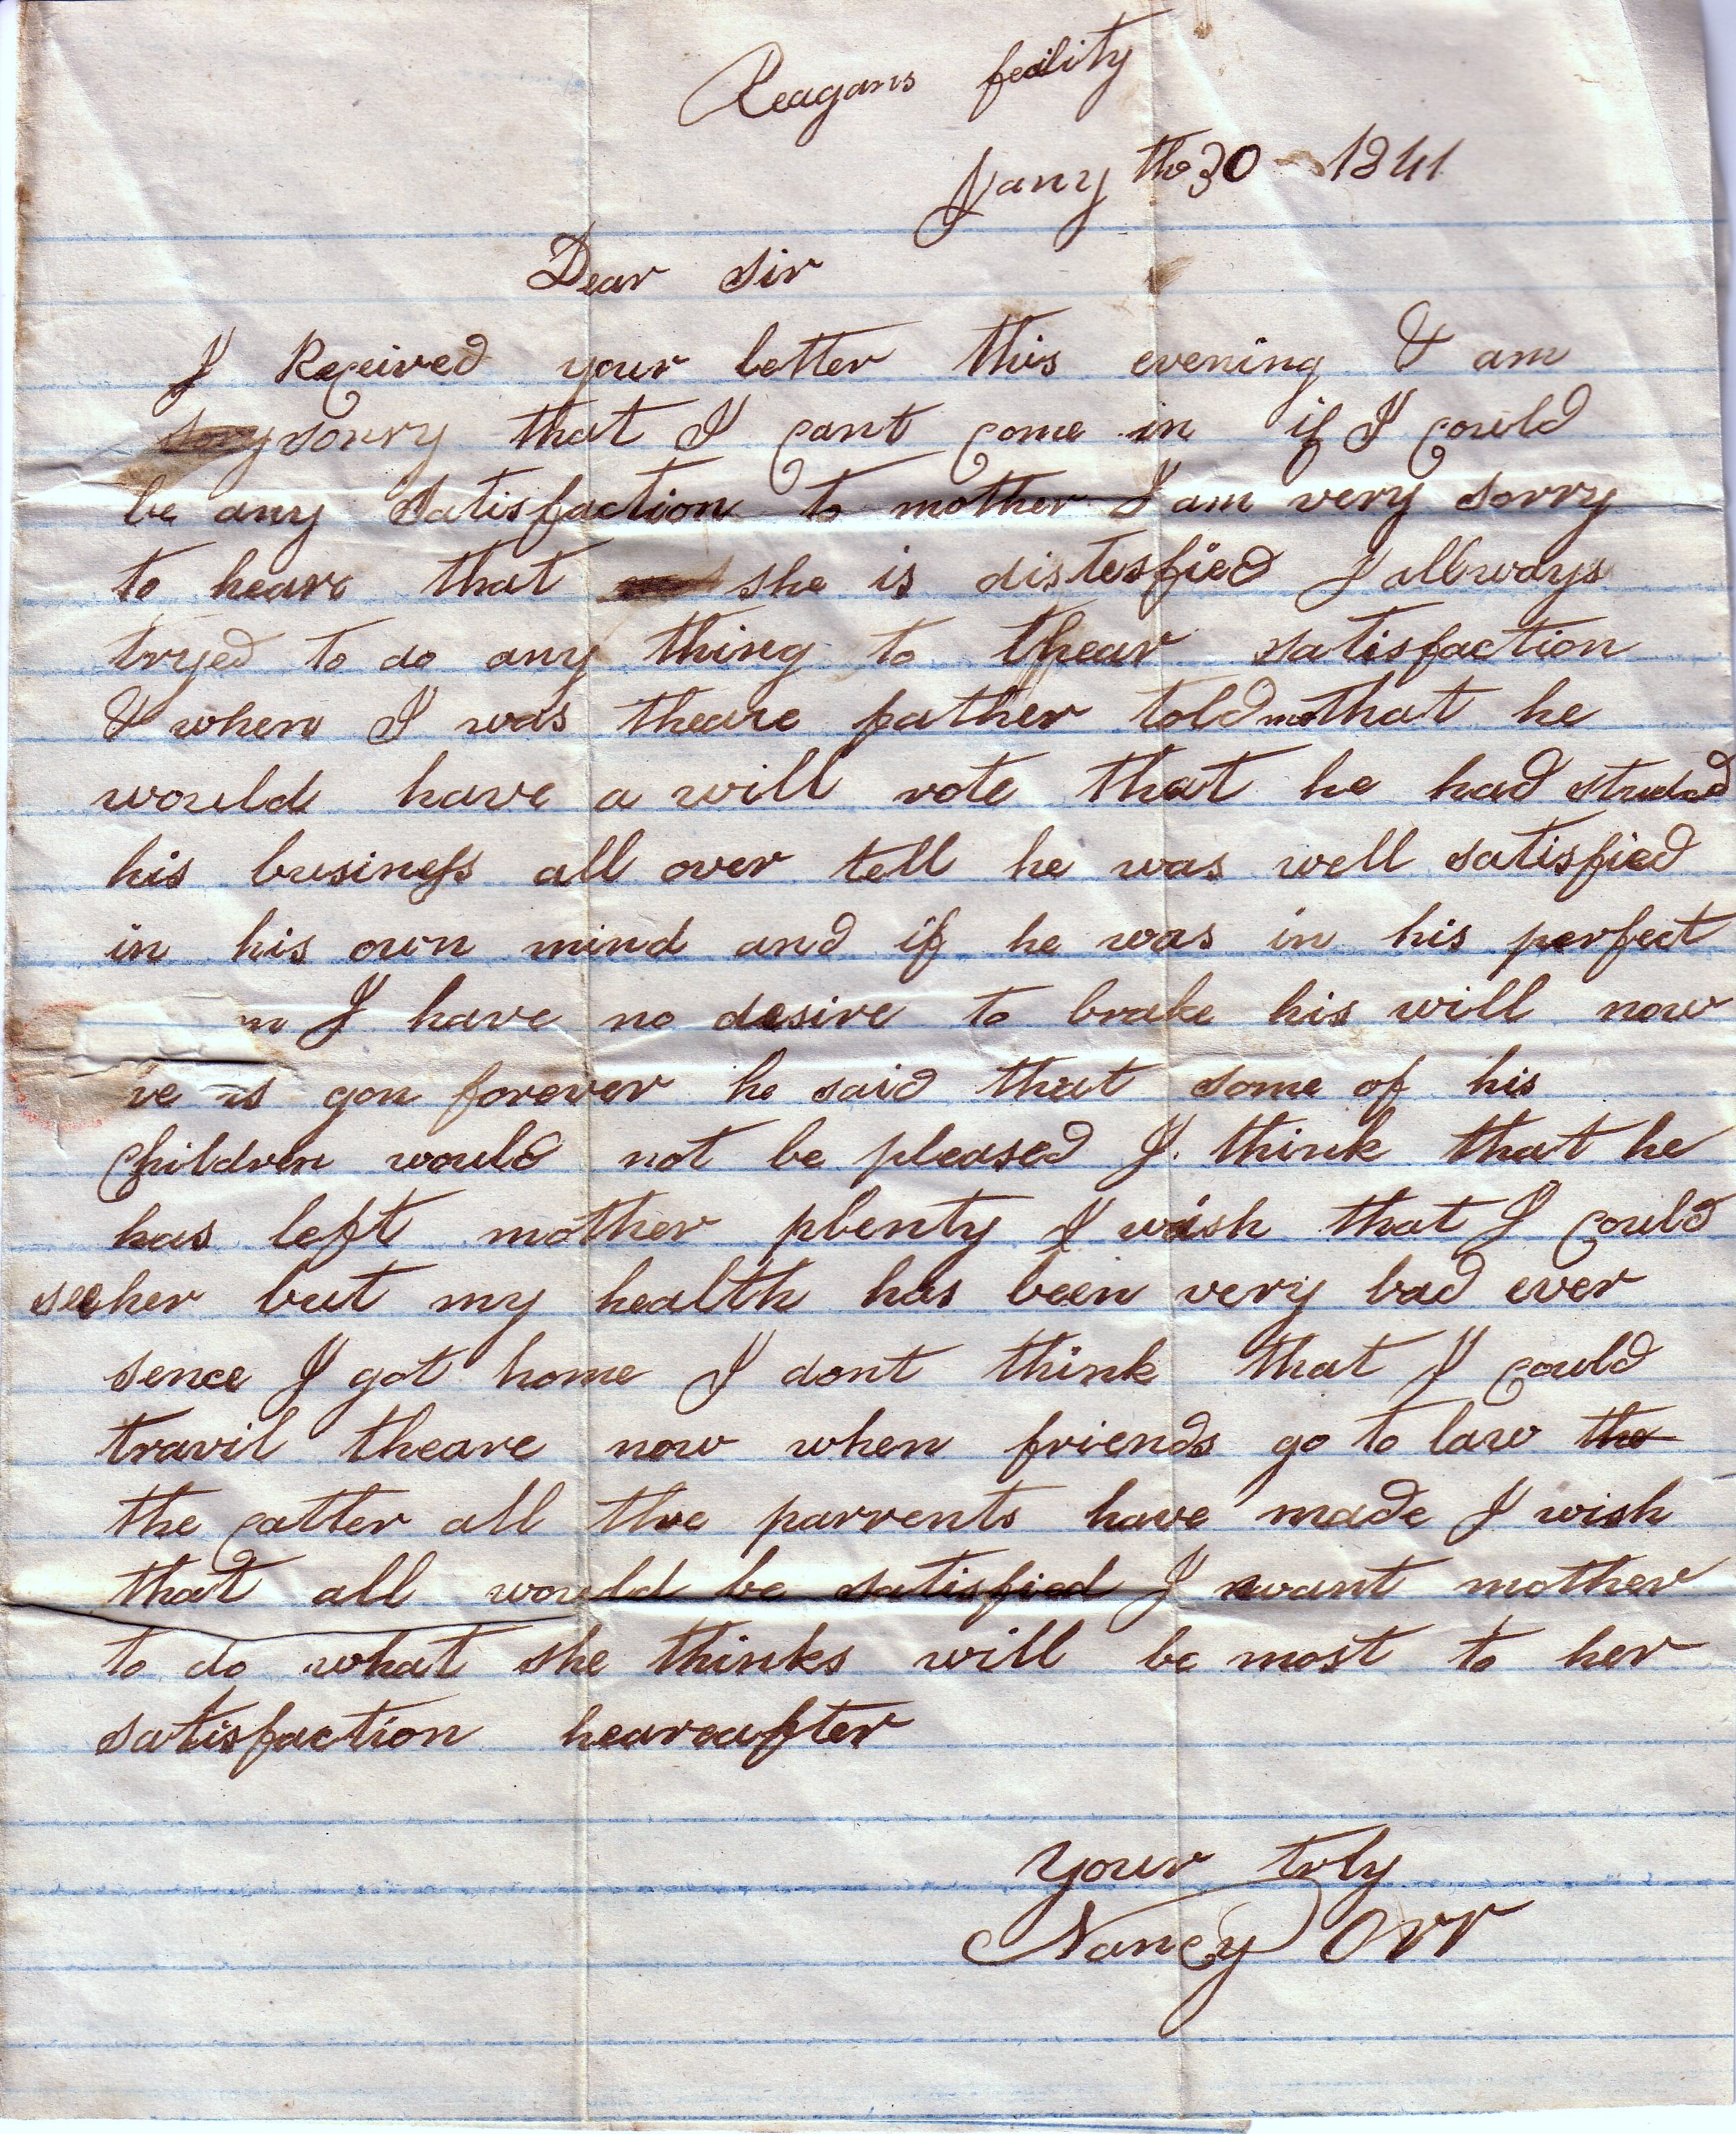 Reagans feality
Jany the 30 1841
Dear Sir
I Received your letter this evening & am
sory sorry that I cant come in if I could
be any Satisfaction to mother I am very sorry
to heare that she is distesfied I allways
tryed to do any thing to thear satisfaction
& when I was theare father told me that he
would have a will rote that he had studed
his business all over tell he was well satisfied
in his own mind and if he was in his perfect
I have no desire to brake his will now
is gon forever he said that some of his
Children would not be pleased I think that he
has left mother plenty I wish that I could
see her but my health has been very bad ever
sence I got home I dont think that I could
travil theare now when friends go to law the
the catter all the parrents have made I wish
that all would be satisfied I want mother
to do what she thinks will be most to her
satisfaction heareafter
Your trly
Nancy Orr